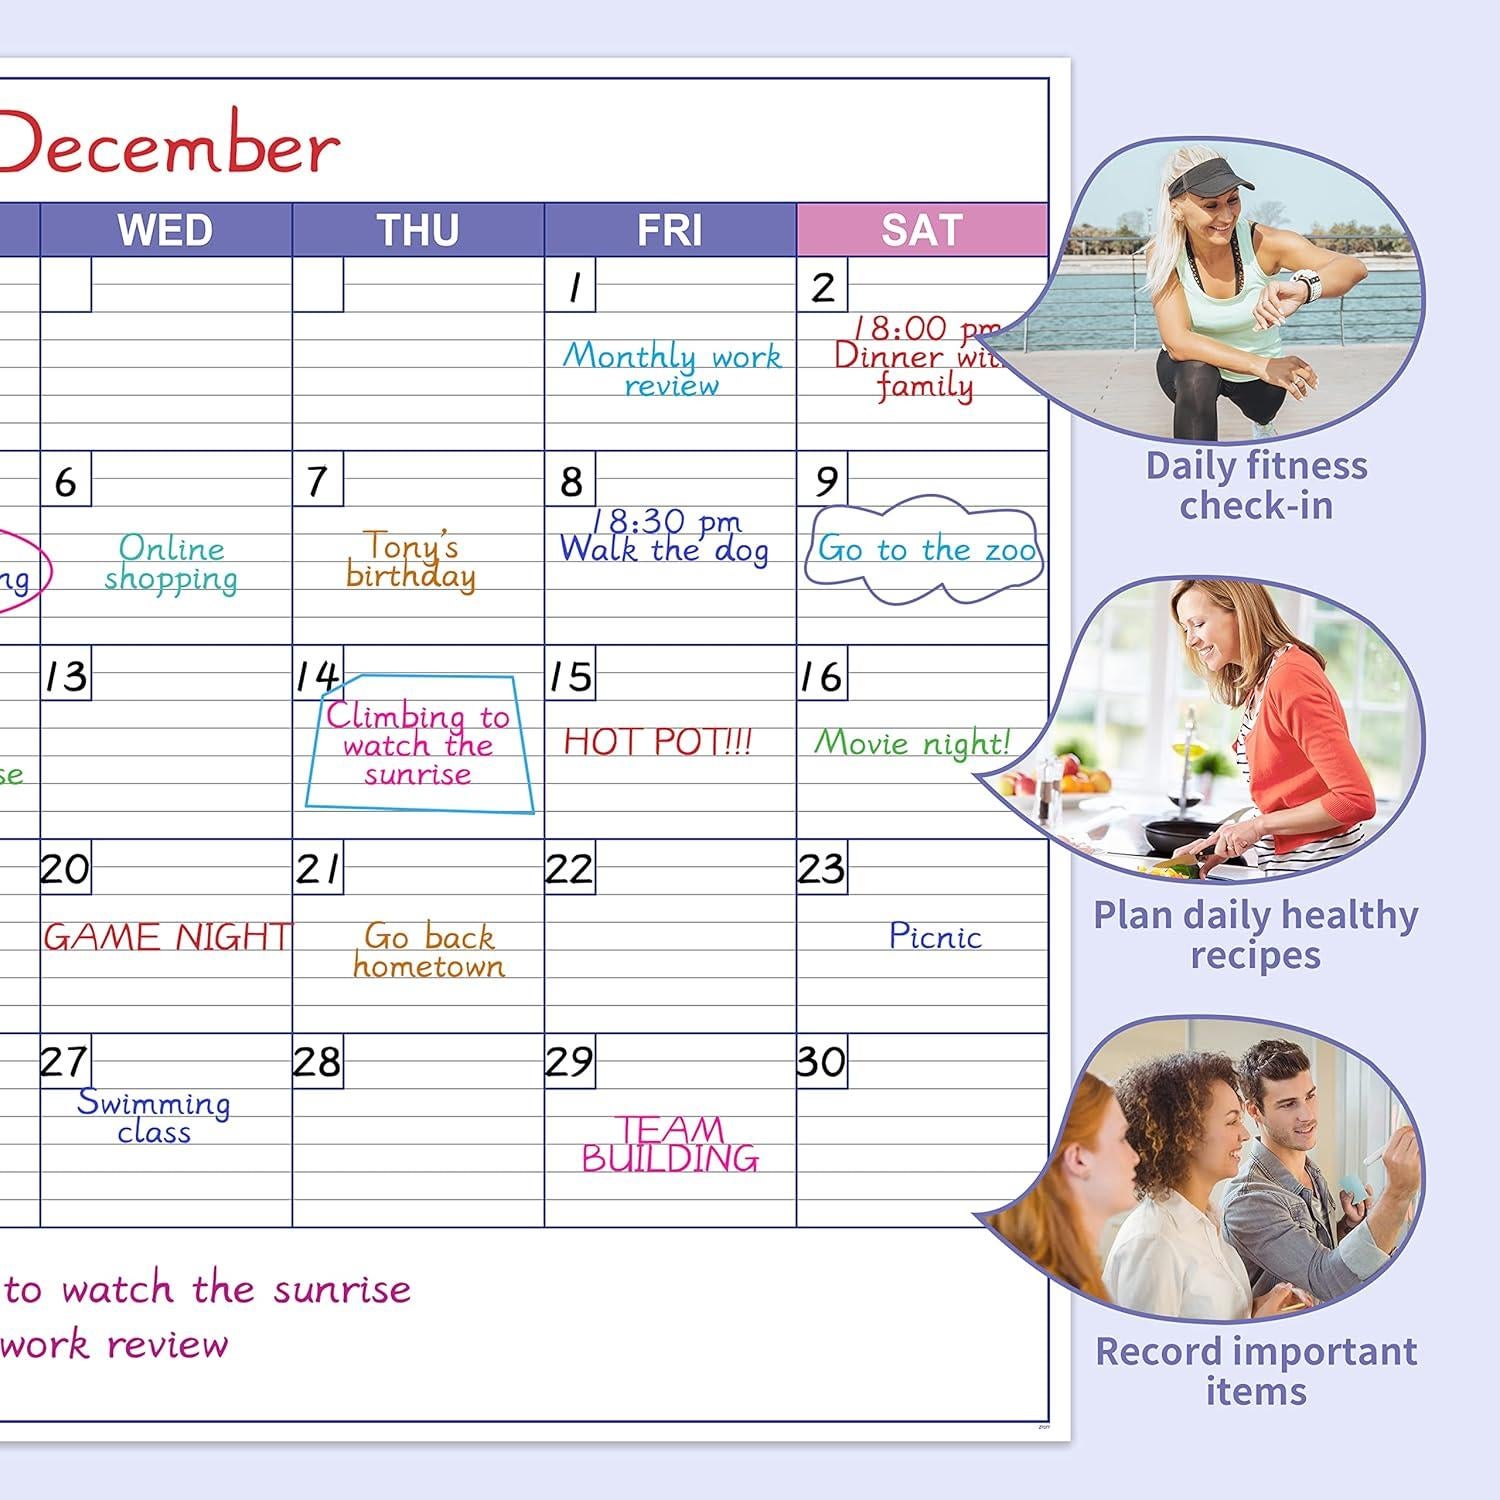 December
WED THU FRI SAT
1 2
Monthly work
review
18:00 pm
Dinner with
family
6 7 8 9
ng
Online
shopping
Tony's
birthday
18:30 pm
Walk the dog
Go to the zoo
13 14 15 16
se
Climbing to
watch the
sunrise
HOT POT!!!
Movie night!
20 21 22 23
GAME NIGHT
Go back
hometown
Picnic
27 28 29 30
Swimming
class
TEAM
BUILDING
to watch the sunrise
work review
Daily fitness
check-in
Plan daily healthy
recipes
Record important
items